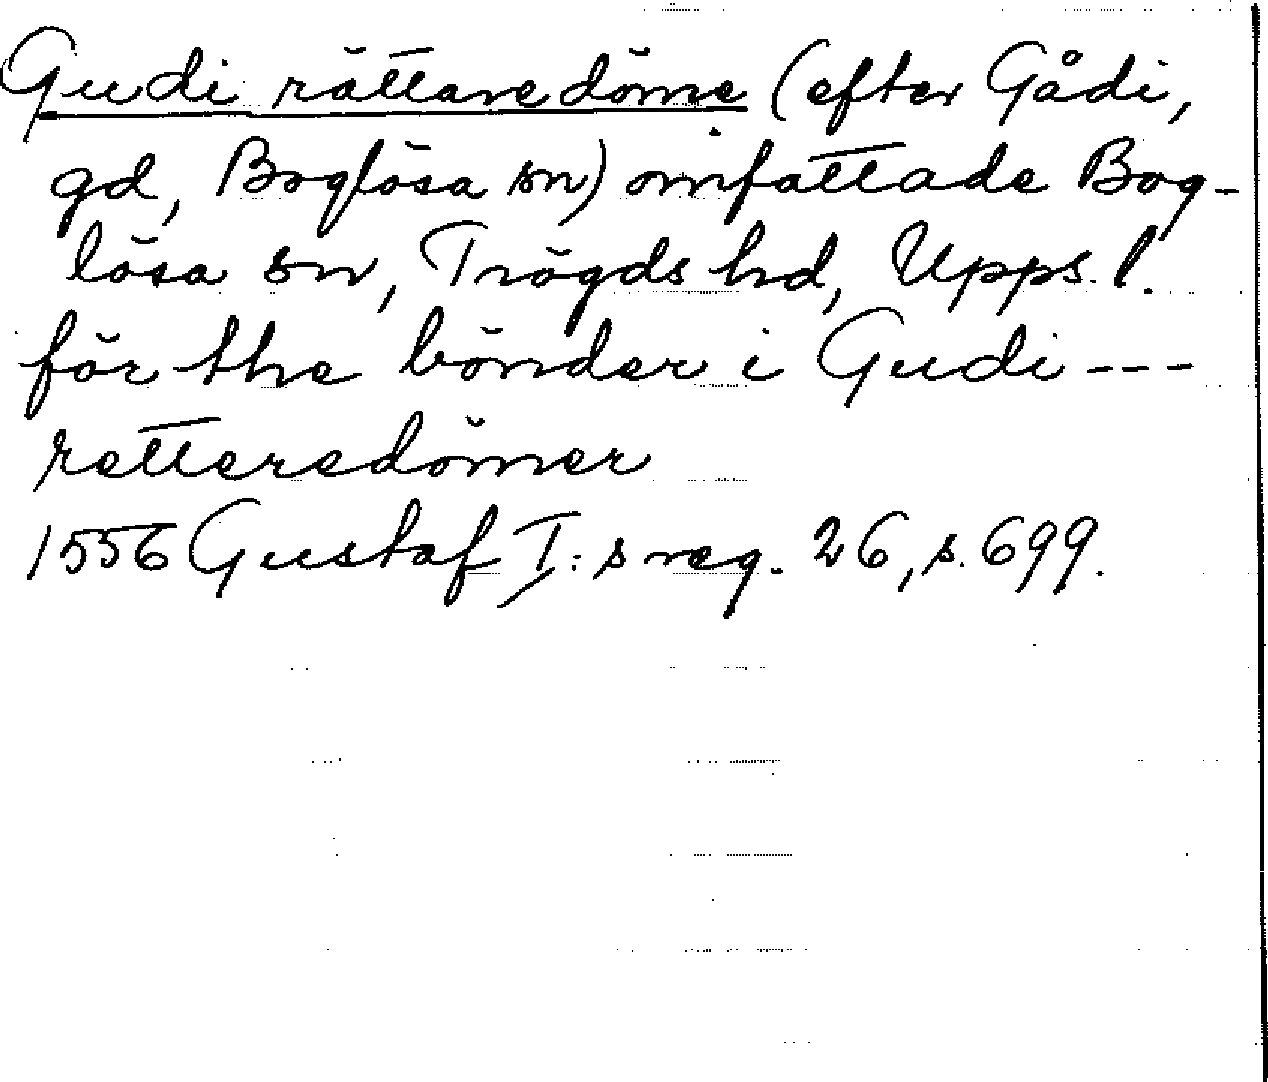 Gudi rättaredöme (efter Gådi,
gd, Boglösa sn) omfattade Bog-
lösa sn, Trögds hd, Upps. l.
för the bönder i Gudi ---
rettersdömer
1556 Gustaf I:s reg. 26, s. 699.